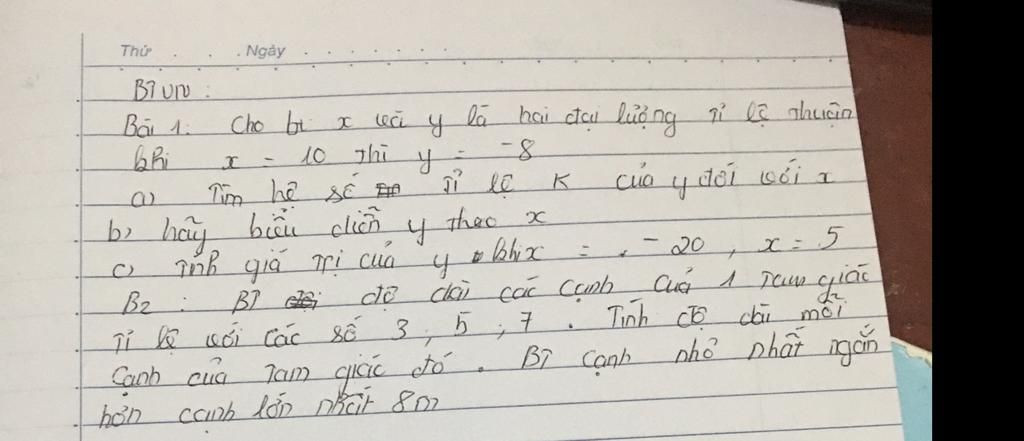 Thứ . . . . Ngày . . . . . . . .
BTVN :
Bài 1: Cho bt x và y là hai đại lượng tỉ lệ thuận
khi x = 10 thì y = -8
a) Tìm hệ số tỉ lệ K của y đối với x
b) hãy biểu diễn y theo x
c) Tính giá trị của y khi x = -20 , x = 5
B2 : BT độ dài các cạnh của 1 tam giác
tỉ lệ với các số 3 , 5 , 7 . Tính độ dài mỗi
cạnh của tam giác đó . BT cạnh nhỏ nhất ngắn
hơn cạnh lớn nhất 8m